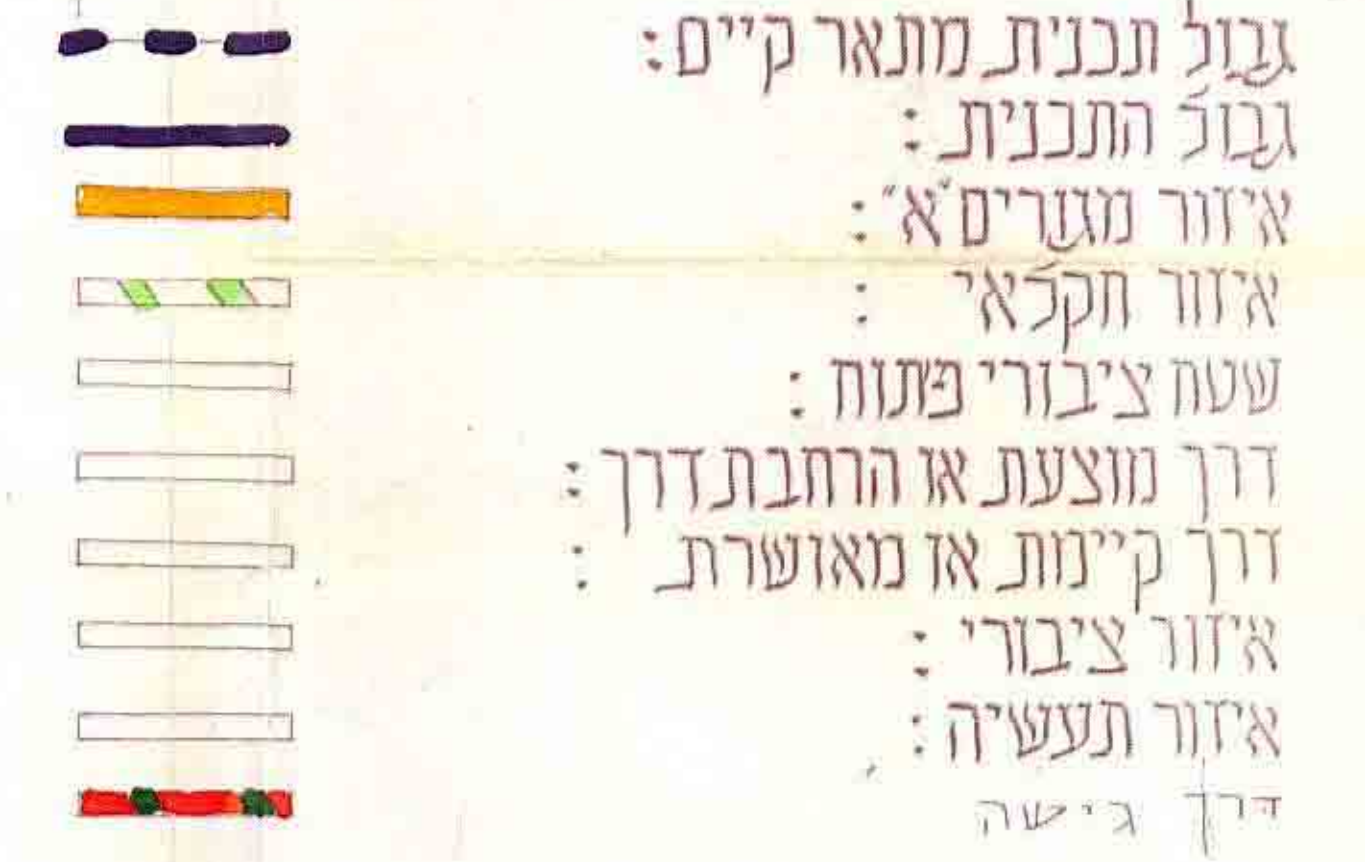 גבול תכנית מתאר קיים:
גבול התכנית:
איזור מגורים "א":
איזור חקלאי :
שטח ציבורי פתוח:
דרך מוצעת או הרחבת דרך:
דרך קיימת או מאושרת :
איזור ציבורי:
איזור תעשיה:
דרך גישה